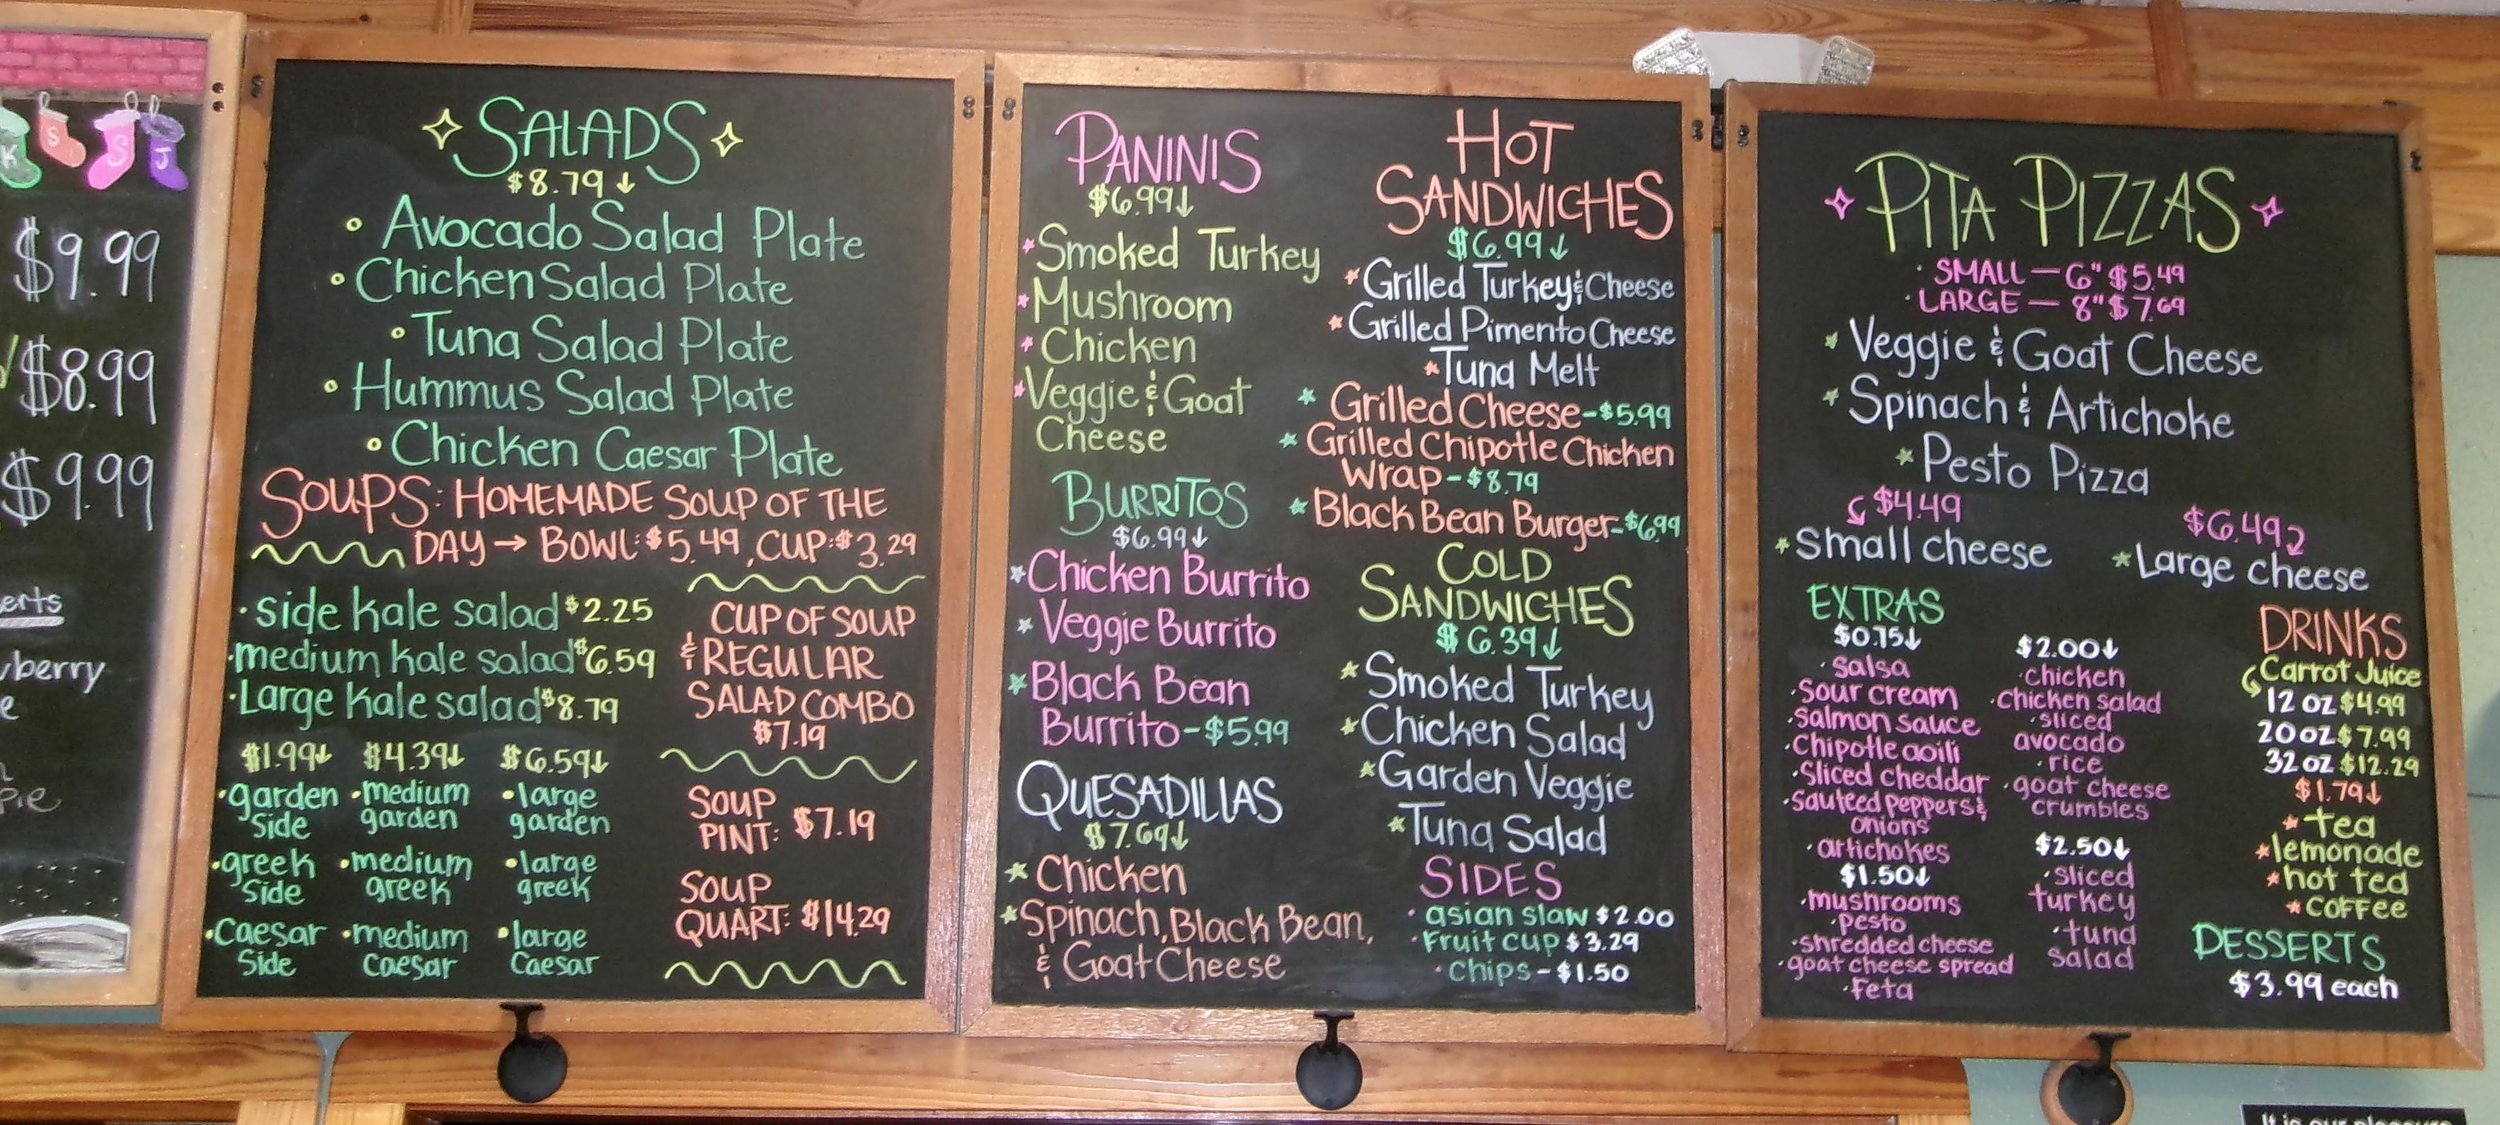 K S S J
$9.99
$8.99
$9.99
erts
berry
e
pie
SALADS
$8.79 ↓
Avocado Salad Plate
Chicken Salad Plate
Tuna Salad Plate
Hummus Salad Plate
Chicken Caesar Plate
SOUPS: HOMEMADE SOUP OF THE
DAY → BOWL: $5.49, CUP: $3.29
side kale salad $2.25
medium kale salad $6.59
Large kale salad $8.79
$1.99↓ $4.39↓ $6.59↓
garden medium large
Side garden garden
greek medium large
Side greek greek
Caesar medium large
Side Caesar Caesar
CUP OF SOUP
& REGULAR
SALAD COMBO
$7.19
SOUP
PINT: $7.19
SOUP
QUART: $14.29
PANINIS
$6.99↓
Smoked Turkey
Mushroom
Chicken
Veggie & Goat
Cheese
BURRITOS
$6.99↓
Chicken Burrito
Veggie Burrito
Black Bean
Burrito-$5.99
QUESADILLAS
$7.69↓
Chicken
Spinach, Black Bean,
& Goat Cheese
HOT
SANDWICHES
$6.99↓
Grilled Turkey & Cheese
Grilled Pimento Cheese
Tuna Melt
Grilled Cheese-$5.99
Grilled Chipotle Chicken
Wrap-$8.79
Black Bean Burger-$6.99
COLD
SANDWICHES
$6.39↓
Smoked Turkey
Chicken Salad
Garden Veggie
Tuna Salad
SIDES
asian slaw $2.00
Fruit cup $3.29
Chips-$1.50
PITA PIZZAS
SMALL — 6" $5.49
LARGE — 8" $7.69
Veggie & Goat Cheese
Spinach & Artichoke
Pesto Pizza
$4.49
Small cheese
$6.49
Large cheese
EXTRAS
$0.75↓
Salsa
Sour cream
Salmon sauce
Chipotle aoili
Sliced cheddar
Sauteed peppers &
onions
artichokes
$1.50↓
mushrooms
pesto
shredded cheese
goat cheese spread
Feta
$2.00↓
chicken
chicken salad
sliced
avocado
rice
goat cheese
crumbles
$2.50↓
sliced
turkey
tuna
salad
DRINKS
Carrot Juice
12 oz $4.99
20 oz $7.99
32 oz $12.29
$1.79↓
tea
lemonade
hot tea
coffee
DESSERTS
$3.99 each
It is our pleasure